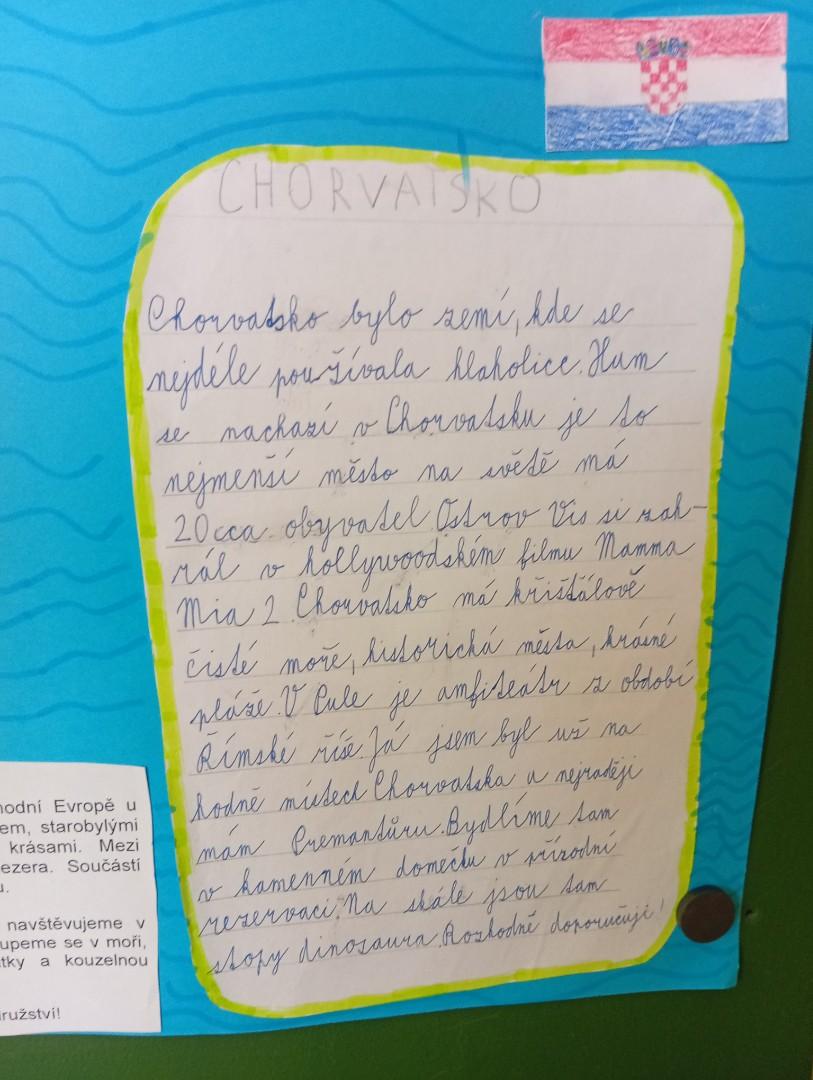 CHORVATSKO
Chorvatsko bylo zemí, kde se
nejdéle používala hlaholice. Hum
se nachází v Chorvatsku je to
nejmenší město na světě má
20 cca obyvatel. Ostrov Vis si zah-
rál v hollywoodském filmu Mamma
Mia 2. Chorvatsko má křišťálově
čisté moře, historická města, krásné
pláže. V Pule je amfiteátr z období
Římské říše. Já jsem byl už na
hodně místech Chorvatska a nejraději
mám Premantůru. Bydlíme tam
v kamenném domečku v přírodní
rezervaci. Na skále jsou tam
stopy dinosaura. Rozhodně doporučuji!
hodní Evropě u
em, starobylými
krásami. Mezi
ezera. Součástí
u.
navštěvujeme v
upeme se v moři,
tky a kouzelnou
ružství!